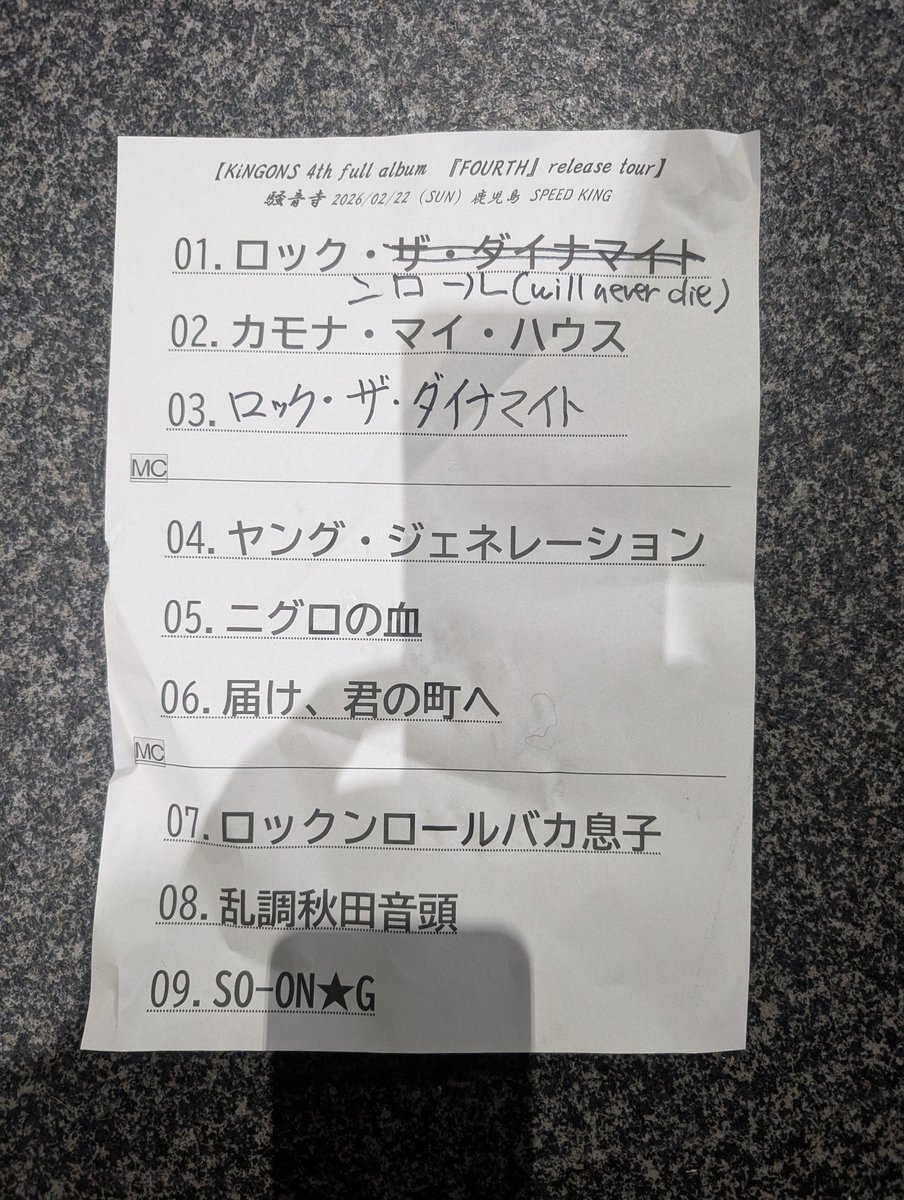 【KiNGONS 4th full album 『FOURTH』 release tour】
騒音寺 2026/02/22 (SUN) 鹿児島 SPEED KING
01.ロック・ザ・ダイナマイト
ンロール(will never die)
02.カモナ・マイ・ハウス
03.ロック・ザ・ダイナマイト
MC
04.ヤング・ジェネレーション
05.ニグロの血
06.届け、君の町へ
MC
07.ロックンロールバカ息子
08.乱調秋田音頭
09.SO-ON★G